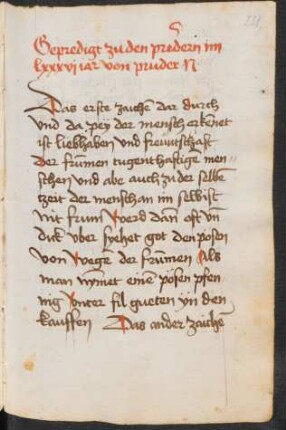 Gepredigt zu den predigern im
lxxxvi iar von pruder N
Das erste zaichē dar durch
vnd da pey der mensch erkēnet
ist liebhaben vnd freuntschaft
der frumen tugenthaftige men=
schen vnd abe auch zu der selbē
tzeit der mensch an im selbist
nit frum werd dan oft vn̄
dick vber sychet got den posen
von wegē der frumen Als
man nymet eine posen pfen
nig vnter fil gueten yn den
kauffen Das ander zaichē